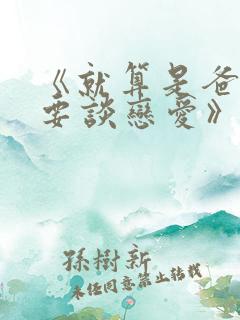 《就算是爸
要談戀愛》
孫樹新
未經同意禁止轉載